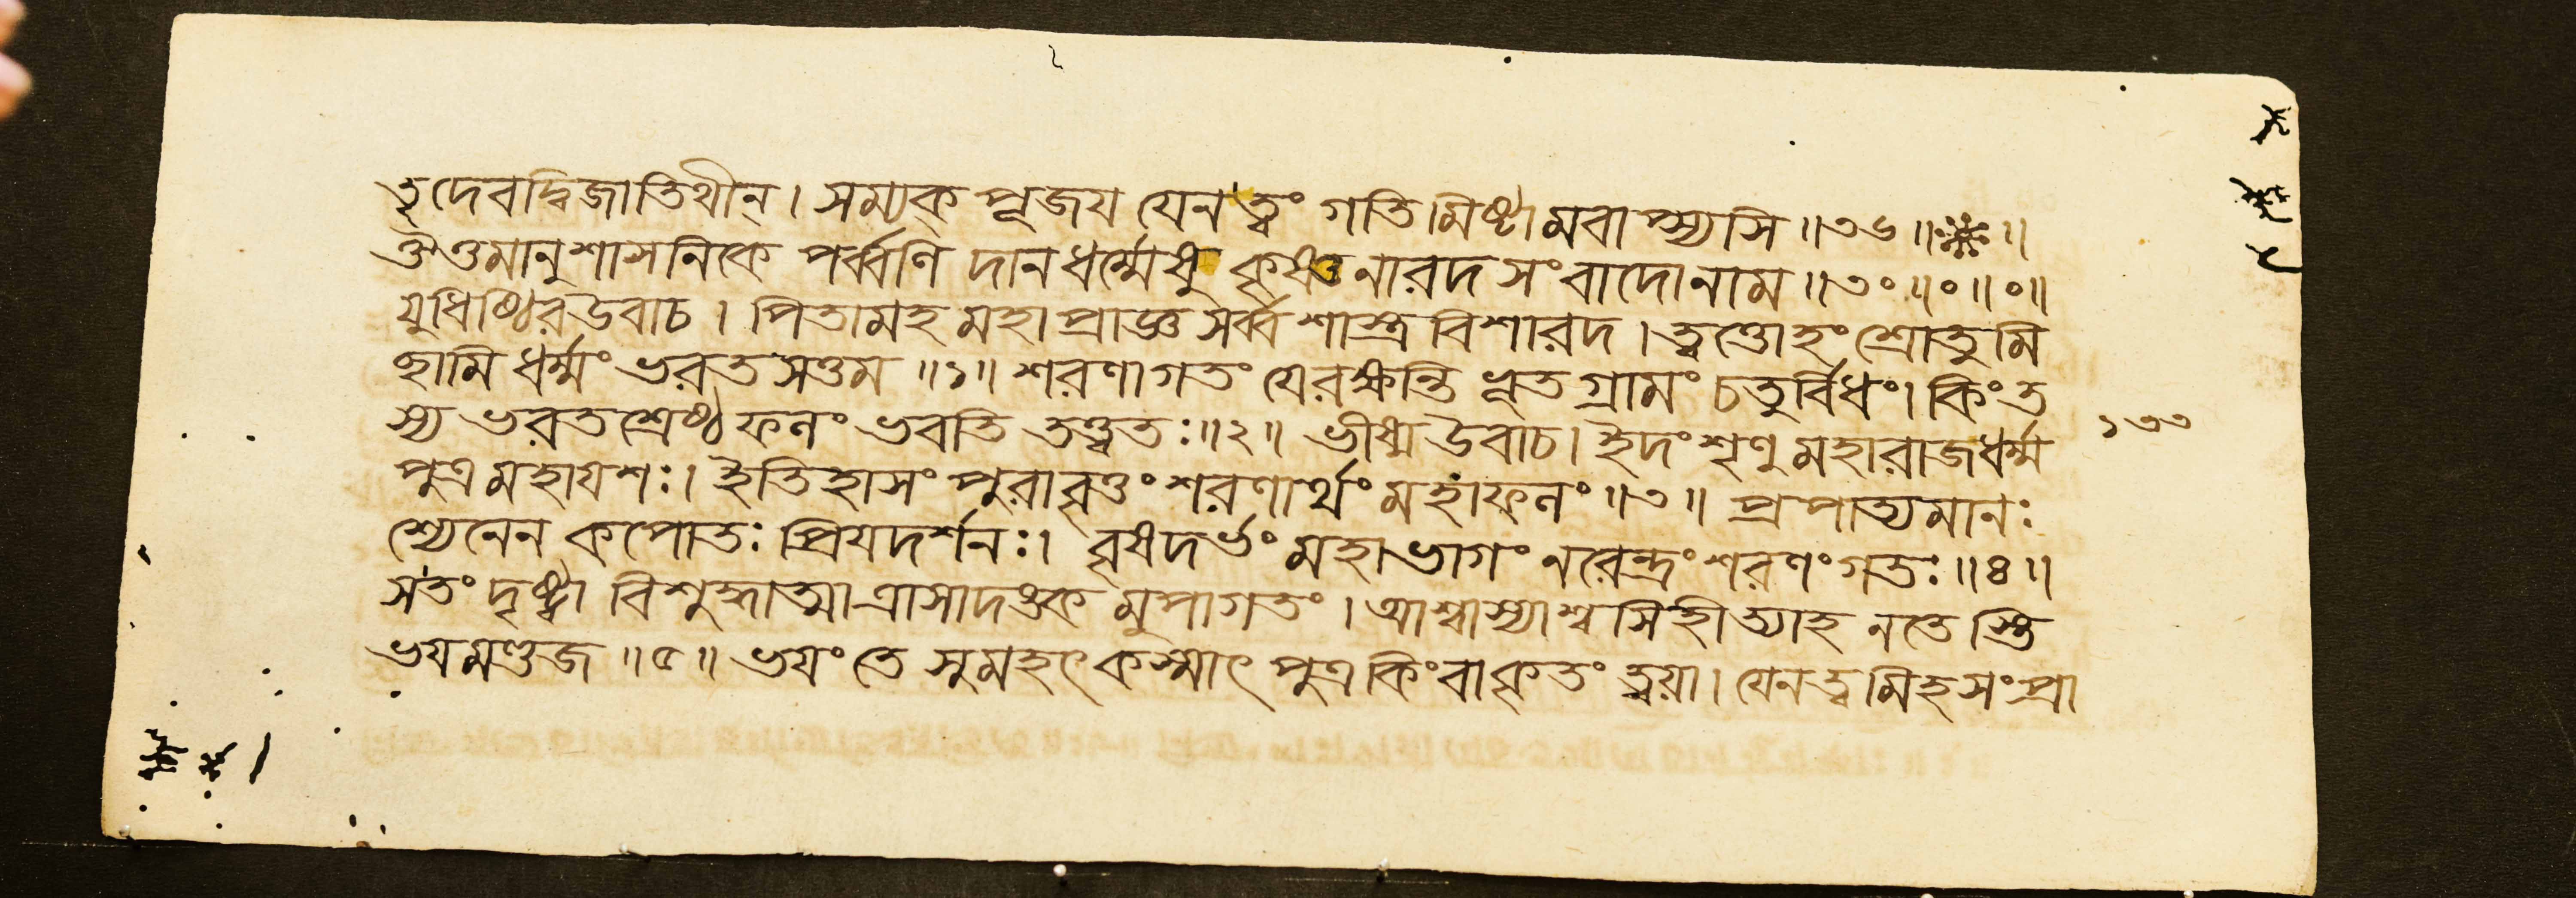 তৃদেবদ্বিজাতিথীন্। সম্যক্ পূজয় যেন ত্বং গতিমিষ্টামবাপ্স্যসি॥৩৬॥※॥
ঔওমানুশাসনিকে পর্ব্বণি দানধর্ম্মেষু কৃষ্ণনারদসংবাদোনাম॥৩০॥০॥০॥
যুধিষ্ঠিরউবাচ। পিতামহ মহাপ্রাজ্ঞ সর্ব্বশাস্ত্রবিশারদ। ত্বত্তোহং শ্রোতুমি
ছামি ধর্ম্মং ভরতসত্তম॥১॥ শরণাগতং যেরক্ষন্তি ভূতগ্রামং চতুর্বিধং। কিং ত
স্য ভরতশ্রেষ্ঠ ফলং ভবতি তত্ত্বতঃ॥২॥ ভীষ্ম উবাচ। ইদং শৃণু মহারাজধর্ম্ম
পুত্র মহাযশঃ। ইতিহাসং পুরাবৃত্তং শরণার্থং মহাফলং॥৩॥ প্রপাত্যমানঃ
শ্যেনেন কপোতঃ প্রিয়দর্শনঃ। বৃষদর্ভং মহাভাগং নরেন্দ্রং শরণং গতঃ॥৪॥
সতং দৃষ্ট্বা বিশুদ্ধাত্মা ত্রাসাদঙ্কমুপাগতং। আশ্বাস্যাশ্বসিহীত্যাহ নতেস্তি
ভয়মণ্ডজ॥৫॥ ভয়ং তে সুমহৎ কস্মাৎ পুত্র কিংবাকৃতং ত্বয়া। যেনত্বমিহসংপ্রা
১৩৩